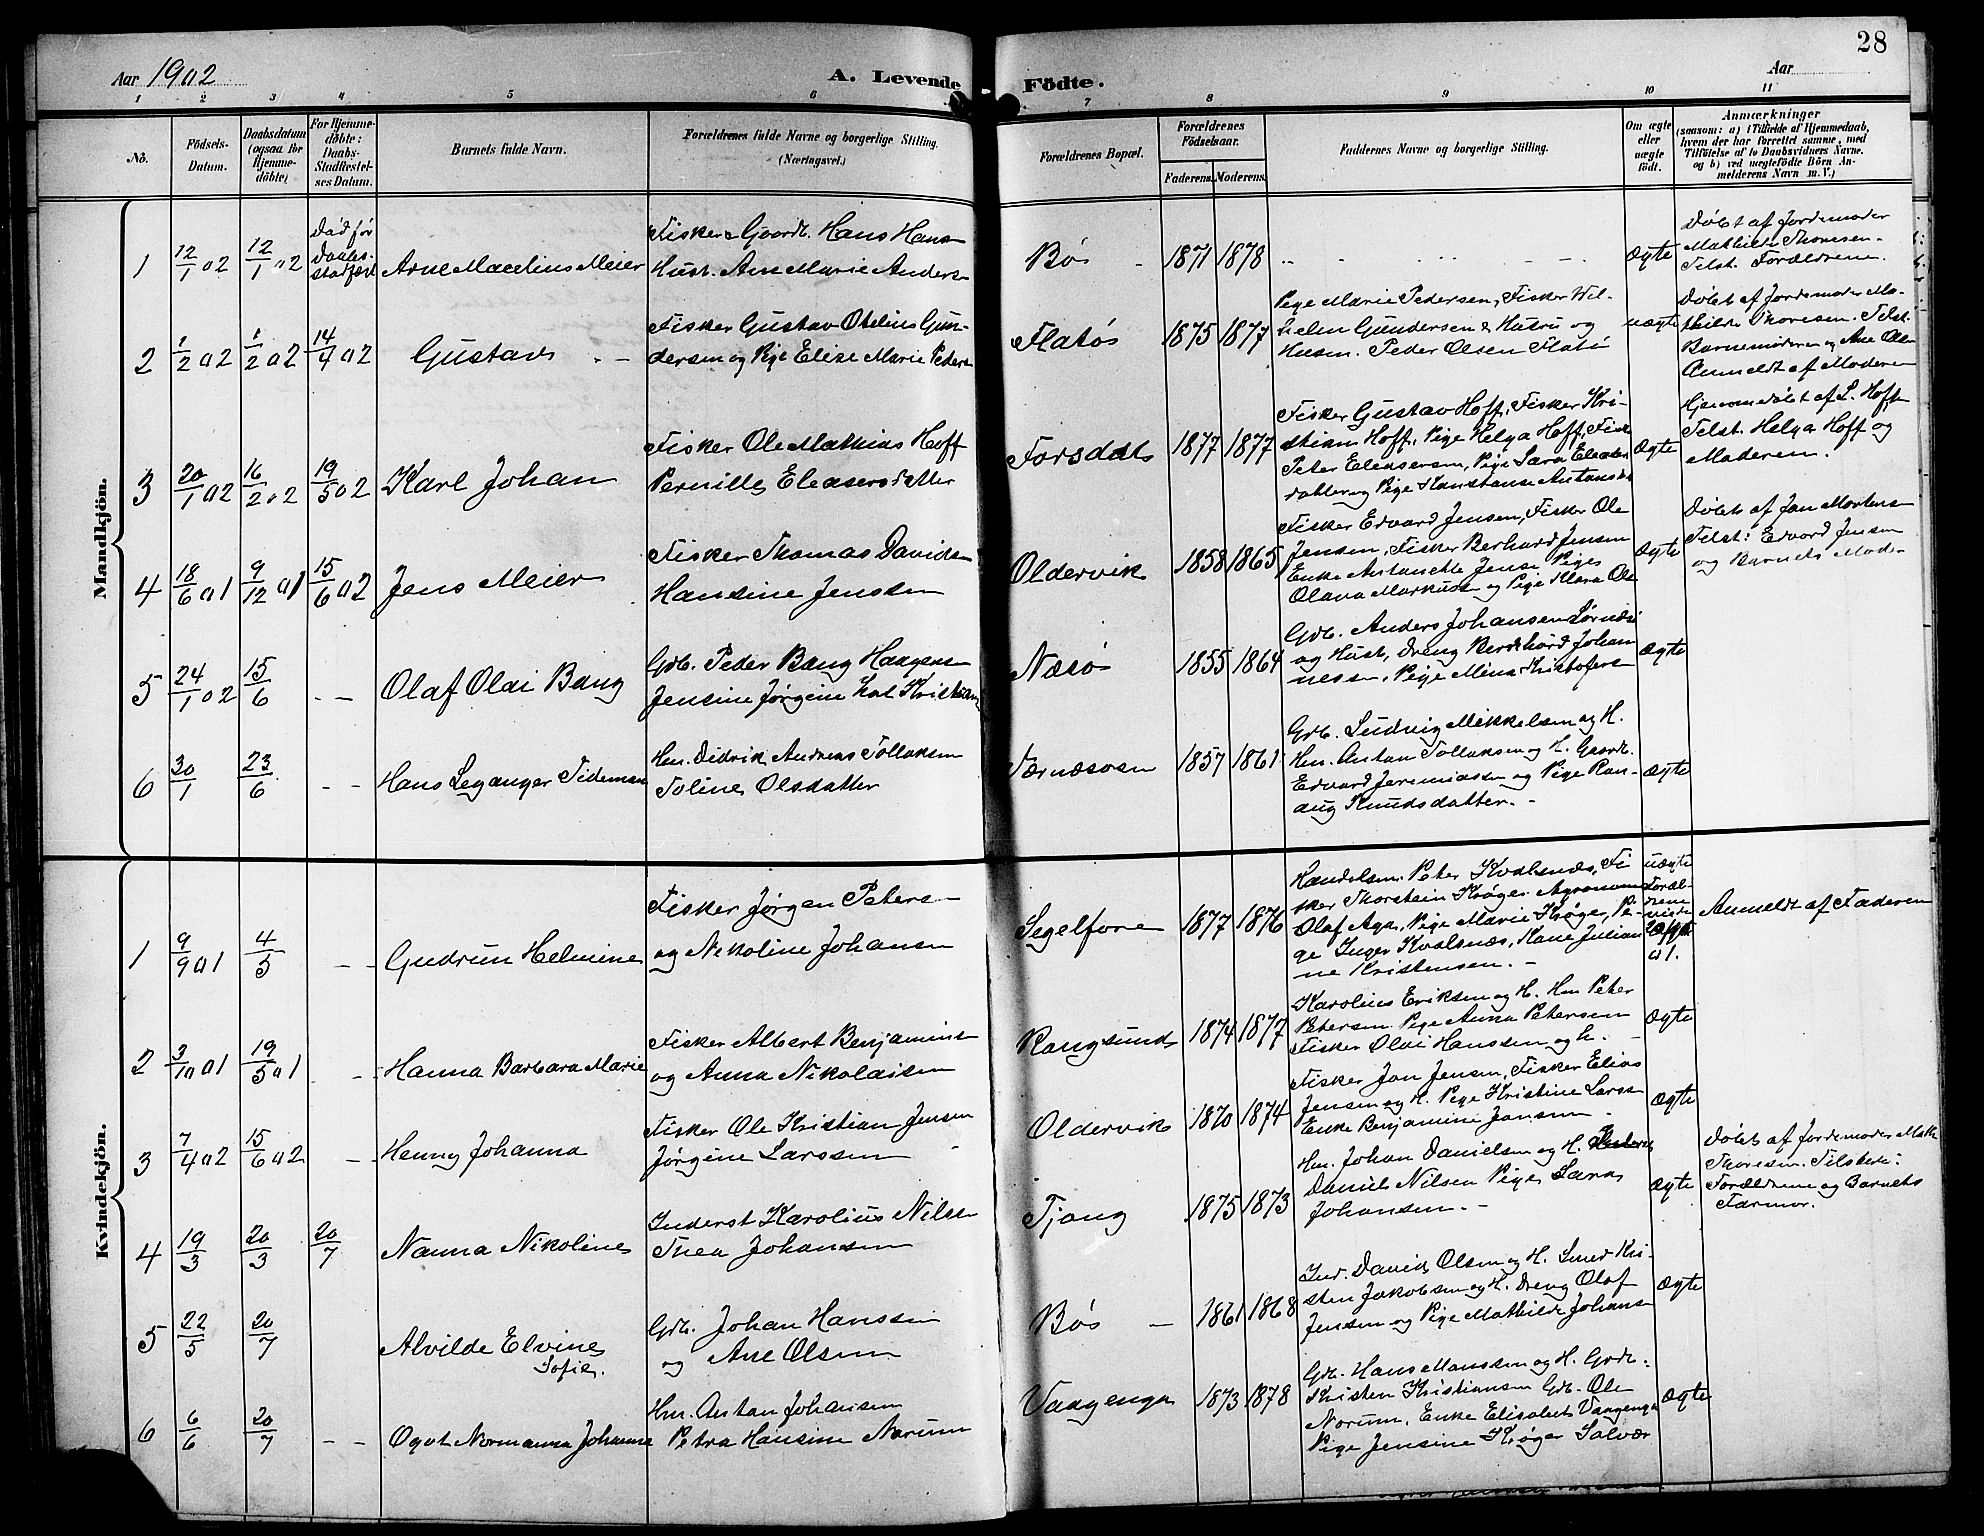 28
Aar 1902
A. Levende Födte.
Aar
1 2 3 4 5 6 7 8 9 10 11
No.
Födsels-
Datum.
Daabsdatum
(ogsaa for
Hjemme-
döbte)
For Hjemme-
döbte:
Daabs-
Stadfæstel-
ses Datum.
Barnets fulde Navn.
Forældrenes fulde Navne og borgerlige Stilling.
(Næringsvei.)
Forældrenes Bopæl.
Forældrenes
Födselsaar.
Faderens. Moderens.
Faddernes Navne og borgerlige Stilling.
Om ægte
eller
uægte
födt.
Anmærkninger
(saasom: a) i Tilfælde af Hjemmedaab,
hvem der har forrettet samme, med
Tilföielse af to Daabsvidners Navne.
og b) ved uægtefödte Börn An-
melderens Navn m. V.)
Mandkjön.
1 12/1 02 12/1 02
Död før
Daabs-
stadfæst
Arne Maelius Meier
Fisker & Gaardb. Hans Hans
Hust. Ane Marie Anders
Bøs 1871 1878
ægte
Døbt af Jordemoder
Mathilde Thoresen.
Tilst. Forældrene.
2 1/2 02 1/2 02 14/4 02
Gustav
Fisker Gustav Otelius Gun-
dersen og Pige Elise Marie Peders
Flatøs 1875 1877
Pige Marie Pedersen, Fisker Wil-
helm Gundersen & Hustru og
Husm. Peder Olsen Flatø
uægte
Døbt af Jordemoder Ma-
thilde Thoresen. Tilst.
Barnemoderen og Ane Ols
Anmeldt af Moderen
3 20/1 02 16/2 02 19/5 02
Karl Johan
Fisker Ole Mathias Hoff
Pernille Eleasersdatter
Forsdal 1877 1877
Fisker Gustav Hoff, Fisker Kri-
stian Hoff, Pige Helga Hoff, Fisk
Peter Eleasersen, Pige Sara Eleaser
datter og Pige Konstanse Antonsd
ægte
Hjemmedøbt af L. Hoff
Tilst. Helga Hoff og
Moderen.
4 18/6 01 9/12 01 15/6 02
Jens Meier
Fisker Thomas Davids
Hansine Jenssen
Oldervik 1858 1865
Fisker Edvard Jensen, Fisker Ole
Jensen, Fisker Berhard Jensen
Enke Antonette Jense Pige
Olava Markusen og Pige Klara Ols
ægte
Døbt af Jon Mortens
Tilst: Edvard Jensen
og Barnets Moder
5 24/1 02 15/6
Olaf Olai Bang
Grb. Peder Bang Haagens
Jensine Jørgine Kat Kristian
Næsø 1855 1864
Grb. Anders Johansen Sørnæs
og Hust, Dreng Bernhard Johan
nessen, Pige Mina Kristofers
ægte
6 30/1 23/6
Hans Leganger Tideman
Hm. Didrik Andreas Tollaksen
Toline Olsdatter
Værnæsosen 1857 1861
Grb. Ludvig Mikkelsen og H.
Hm. Anton Tollaksen og H. Gaardb.
Edvard Jeremiassen og Pige Ran-
aug Knudsdatter.
ægte
Kvindekjön.
1 9/9 01 4/5
Gudrun Helmine
Fisker Jørgen Peters
og Nikoline Johansen
Segelfore 1877 1876
Handelsm. Peter Kvalsnæs, Fi
sker Thorstein Krøger Agronom
Olaf Aga, Pige Marie Krøge, Pi-
ge Inger Kvalsnæs, Kone Julian
ne Kristensen.
uægte
Foræl-
drene
viede
01.
Anmeldt af Faderen
2 3/10 01 19/5 01
Hanna Barbara Marie
Fisker Albert Benjamins
og Anna Nikolaisen
Rangsund 1874 1877
Karolius Eriksen og H. Hm Peter
Petersen. Pige Anna Petersen
Fisker Olai Hanssen og h.
ægte
3 7/4 02 15/6 02
Henny Johanna
Fisker Ole Kristian Jensen
Jørgine Larssen
Oldervik 1870 1874
Fisker Jon Jensen, Fisker Elias
Jensen og H. Pige Kristine Larss
Enke Benjamine Jonsen
ægte
4 19/3 20/3 20/7
Nanna Nikoline
Inderst Karolius Nils
Thea Johansen
Tjong 1875 1873
Hm. Johan Danielsen og H.
Daniel Nilsen Pige Sara
Johansen.
ægte
Døbt af Jordemoder Math
Thoresen. Tilstede:
Forældrene og Barnets
Farmor.
5 22/5 20/7
Alvilde Elvine
Sofie.
Grb. Johan Hanssen
og Ane Olsen
Bøs 1861 1868
Ind. David Olsen og H. Smed Kri-
sten Jakobsen og H. Dreng Olaf
Jensen og Pige Mathilde Johans
ægte
6 6/6 20/7
Ogot Normanna Johanna
Hm. Anton Johansen
Petra Hansine Norum
Vaagenga 1873 1878
Grb. Hans Monssen og H. Grb.
Kristen Kristiansen Grb. Ole
Norum, Enke Elisabet Vaagenga
Pige Jensine Krøger Solvær
ægte